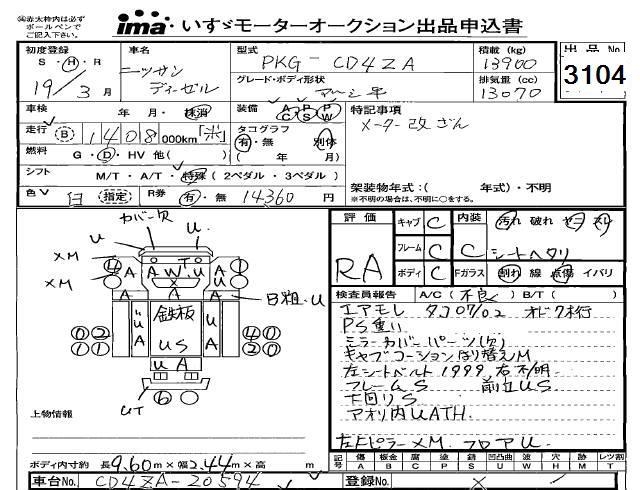 ㊟赤太枠内は必ず
ボールペンで
ご記入下さい。
ima いすゞモーターオークション出品申込書
初度登録 車名 型式 積載 (kg) 出品No
S・H・R ニッサン PKG-CD4ZA 13900 3104
19/3月 ディーゼル グレード・ボディ形状 排気量 (cc)
マーシ平 13070
車検 年 月・抹消 装備 AC PS PW 特記事項
走行 B 1408 000km 「米」 タコグラフ メーター改ざん
有・無 別体
燃料 G・D・HV 他( ) ( 年 月)
シフト M/T・A/T・特殊 (2ペダル・3ペダル) 架装物年式:( 年式)・不明
※不明の場合は、不明に○をする。
色 白 指定 R券 有・無 14360円
評価 キャブ C 内装 汚れ 破れ ヤニ スレ
カバー欠
U
RA フレーム C C シートヘタリ
XM
ボディ C Fガラス 割れ 線 点傷 イバリ
XM 4 A A W T U A
検査員報告 A/C(不良) B/T( )
A A B粗・U
エアモレ タコ07/02 オドク桁
PS重い
鉄板
ミラーカバーパーツ(欠)
02 U U 40
キャブコーションはり替えM
11 US 20
左シートベルト1999, 右不明
UA
フレームS 前立US
UT 6
下回りS
アオリ内UATH.
上物情報
左Fピラー XM フロアU
ボディ内寸約 長9.60m×幅2.44m×高 m
記号 傷 板金 腐 塗 錆 凹凸曲 波 穴 跡 レツ割
A B C P S U W H M T
車台No. CD4ZA-20594 登録No. ×